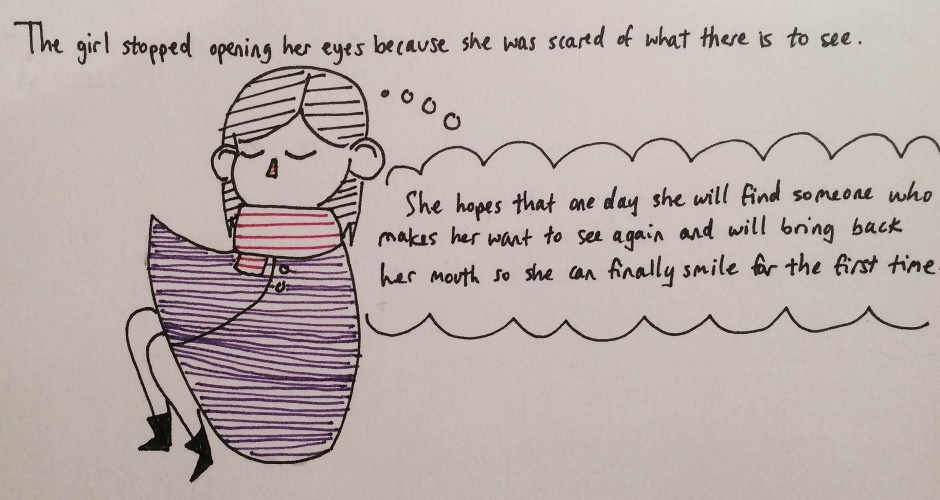 The girl stopped opening her eyes because she was scared of what there is to see.
She hopes that one day she will find someone who
makes her want to see again and will bring back
her mouth so she can finally smile for the first time.